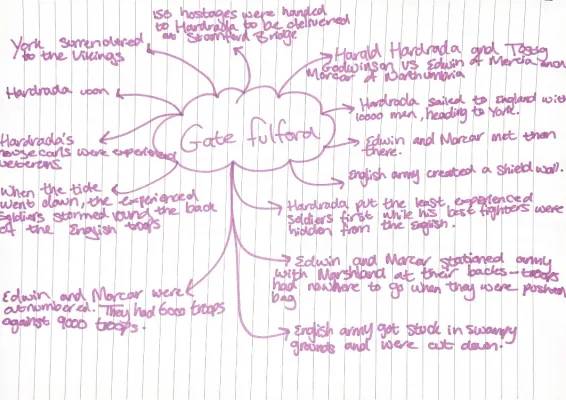 150 hostages were handed
to Hardrada to be delivered
at Stamford Bridge
Harald Hardrada and Tostig
Godwinson vs Edwin of Mercia and
Morcar of Northumbria
Hardrada sailed to England with
10000 men, heading to York.
Edwin and Morcar met them
there.
English army created a shield wall.
Hardrada put the least experienced
soldiers first while his best fighters were
hidden from the English.
Edwin and Morcar stationed army
with Marshland at their backs - troops
had nowhere to go when they were pushed
bag
English army got stuck in swampy
grounds and were cut down.
Edwin and Morcar were
outnumbered. They had 6000 troops
against 9000 troops.
When the tide
went down, the experienced
soldiers stormed round the back
of the English troops
Hardrada's
housecarls were experienced
veterans
Hardrada won
York surrendered
to the Vikings
Gate fulford